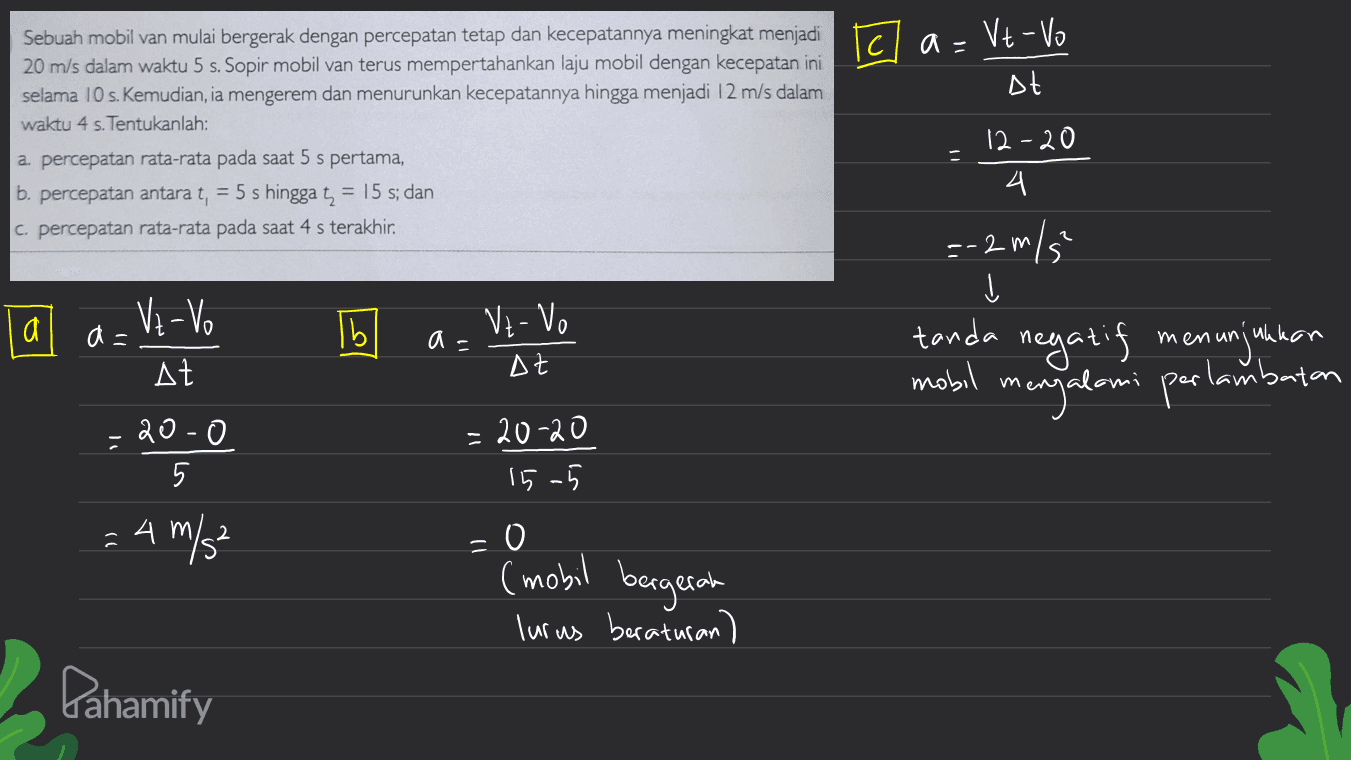 Sebuah mobil van mulai bergerak dengan percepatan tetap dan kecepatannya meningkat menjadi
20 m/s dalam waktu 5 s. Sopir mobil van terus mempertahankan laju mobil dengan kecepatan ini
selama 10 s. Kemudian, ia mengerem dan menurunkan kecepatannya hingga menjadi 12 m/s dalam
waktu 4 s. Tentukanlah:
a. percepatan rata-rata pada saat 5 s pertama,
b. percepatan antara t₁ = 5 s hingga t₂ = 15 s; dan
c. percepatan rata-rata pada saat 4 s terakhir.
a a = Vt - Vo
Δt
= 20 - 0
5
= 4 m/s²
b a = Vt - Vo
Δt
= 20 - 20
15 - 5
= 0
(mobil bergerak
lurus beraturan)
c a = Vt - Vo
Δt
= 12 - 20
4
= -2 m/s²
↓
tanda negatif menunjukkan
mobil mengalami perlambatan
Pahamify